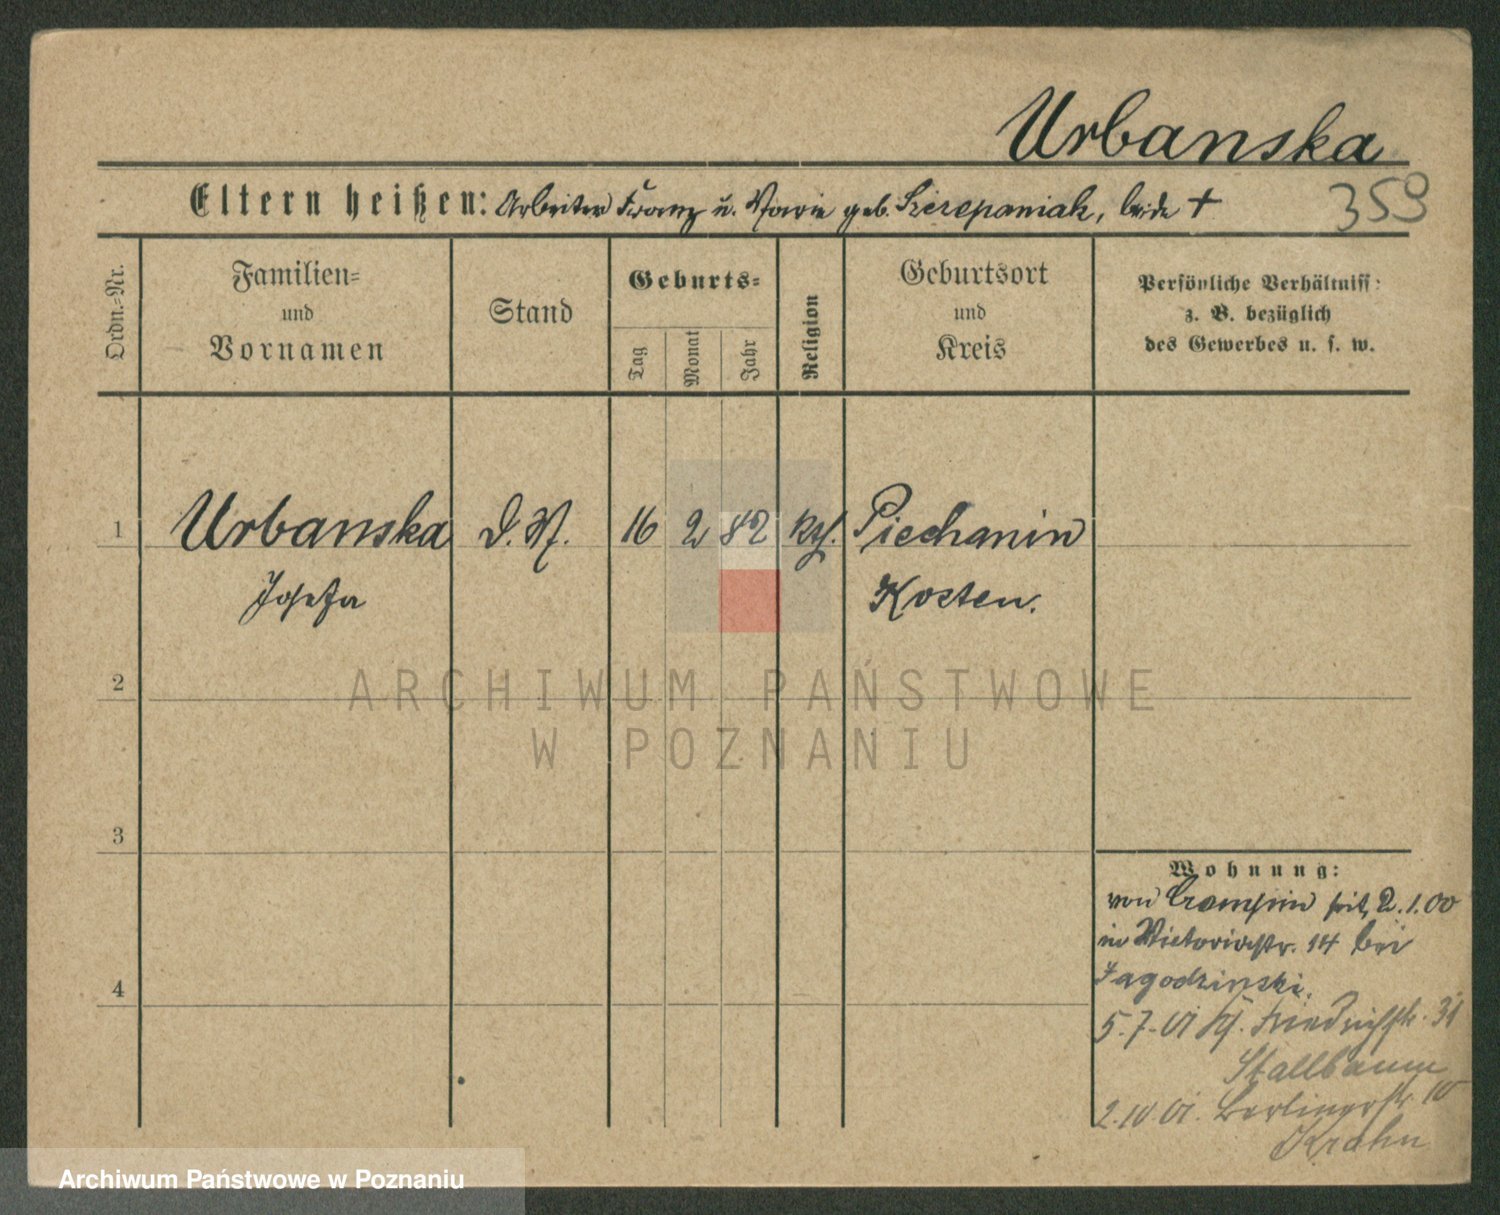 Urbanska
Eltern heißen: Arbeiter Franz u. Marie geb. Szczepaniak, beide +
359
Ordn.=Nr.
Familien=
und
Vornamen
Stand
Geburts=
Tag
Monat
Jahr
Religion
Geburtsort
und
Kreis
Persönliche Verhältniss:
z. B. bezüglich
des Gewerbes u. s. w.
1 Urbanska D. M. 16 2 82 kth. Piechanin
Josefa Kosten.
2
ARCHIWUM PAŃSTWOWE
W POZNANIU
3
4
Wohnung:
von seit 2.1.00
in Victoriastr. 14 bei
Jagodzinski.
5.7.01 Friedrichstr. 31
Stallbaum
2.10.01. Berlinerstr. 10
Krahn
Archiwum Państwowe w Poznaniu